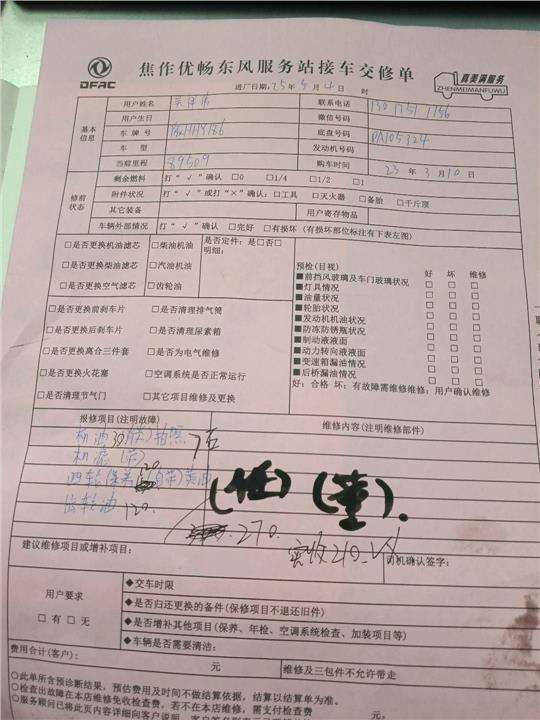 DFAC
焦作优畅东风服务站接车交修单
真美满服务
ZHENMEIMANFUWU
进厂日期:25年5月4日 时
基本信息
用户姓名 联系电话
用户生日 微信号码
车牌号 底盘号码 PA105324
车型 发动机号码
当前里程 89509 购车时间 23年3月10日
修前状态
剩余燃料 打“√”确认 □0 □1/4 □1/2 □1
附件状况 打“√”或打“×”确认:□工具 □灭火器 □备胎 □千斤顶
其它装备 用户寄存物品
车辆外部情况 打“√”确认 □完好 □有损坏(有损坏部位标注有下表左图)
□是否更换机油滤芯 □柴油机油 是否定件:是□否□
明细:
□是否更换柴油滤芯 □汽油机油
□是否更换空气滤芯 □齿轮油
预检(目视) 好 坏 维修
■前挡风玻璃及车门玻璃状况 □ □ □
■灯具情况 □ □ □
■油量状况 □ □ □
■轮胎状况 □ □ □
■发动机机油状况 □ □ □
■防冻防锈瓶状况 □ □ □
■制动液液面 □ □ □
■动力转向液液面 □ □ □
■变速箱漏油情况 □ □ □
■后桥漏油情况 □ □ □
好:合格 坏:有故障需维修维修:用户确认维修
□是否更换前刹车片 □是否清理排气筒
□是否更换后刹车片 □是否清理尿素箱
□是否更换离合三件套 □是否为电气维修
□是否更换火花塞 □空调系统是否正常运行
□是否清理节气门 □其它项目维修及更换
报修项目(注明故障) 维修内容(注明维修部件)
机油30(带)拍照
机滤(带)
四轮保养120(自带)黄油
齿轮油120.
270.
实收210
建议维修项目或增补项目: 司机确认签字:
用户要求
□有 □无
◆交车时限
◆是否归还更换的备件(保修项目不退还旧件)
◆是否增补其他项目(保养、年检、空调系统检查、加装项目等)
◆车辆是否需要清洁:
费用合计(客户): 元 维修及三包件不允许带走
○此单所含预诊断结果,预估费用及时间不做结算依据,结算以结算单为准。
○检查出故障在本店维修免收检查费,若不在本店维修,需支付检查费 元